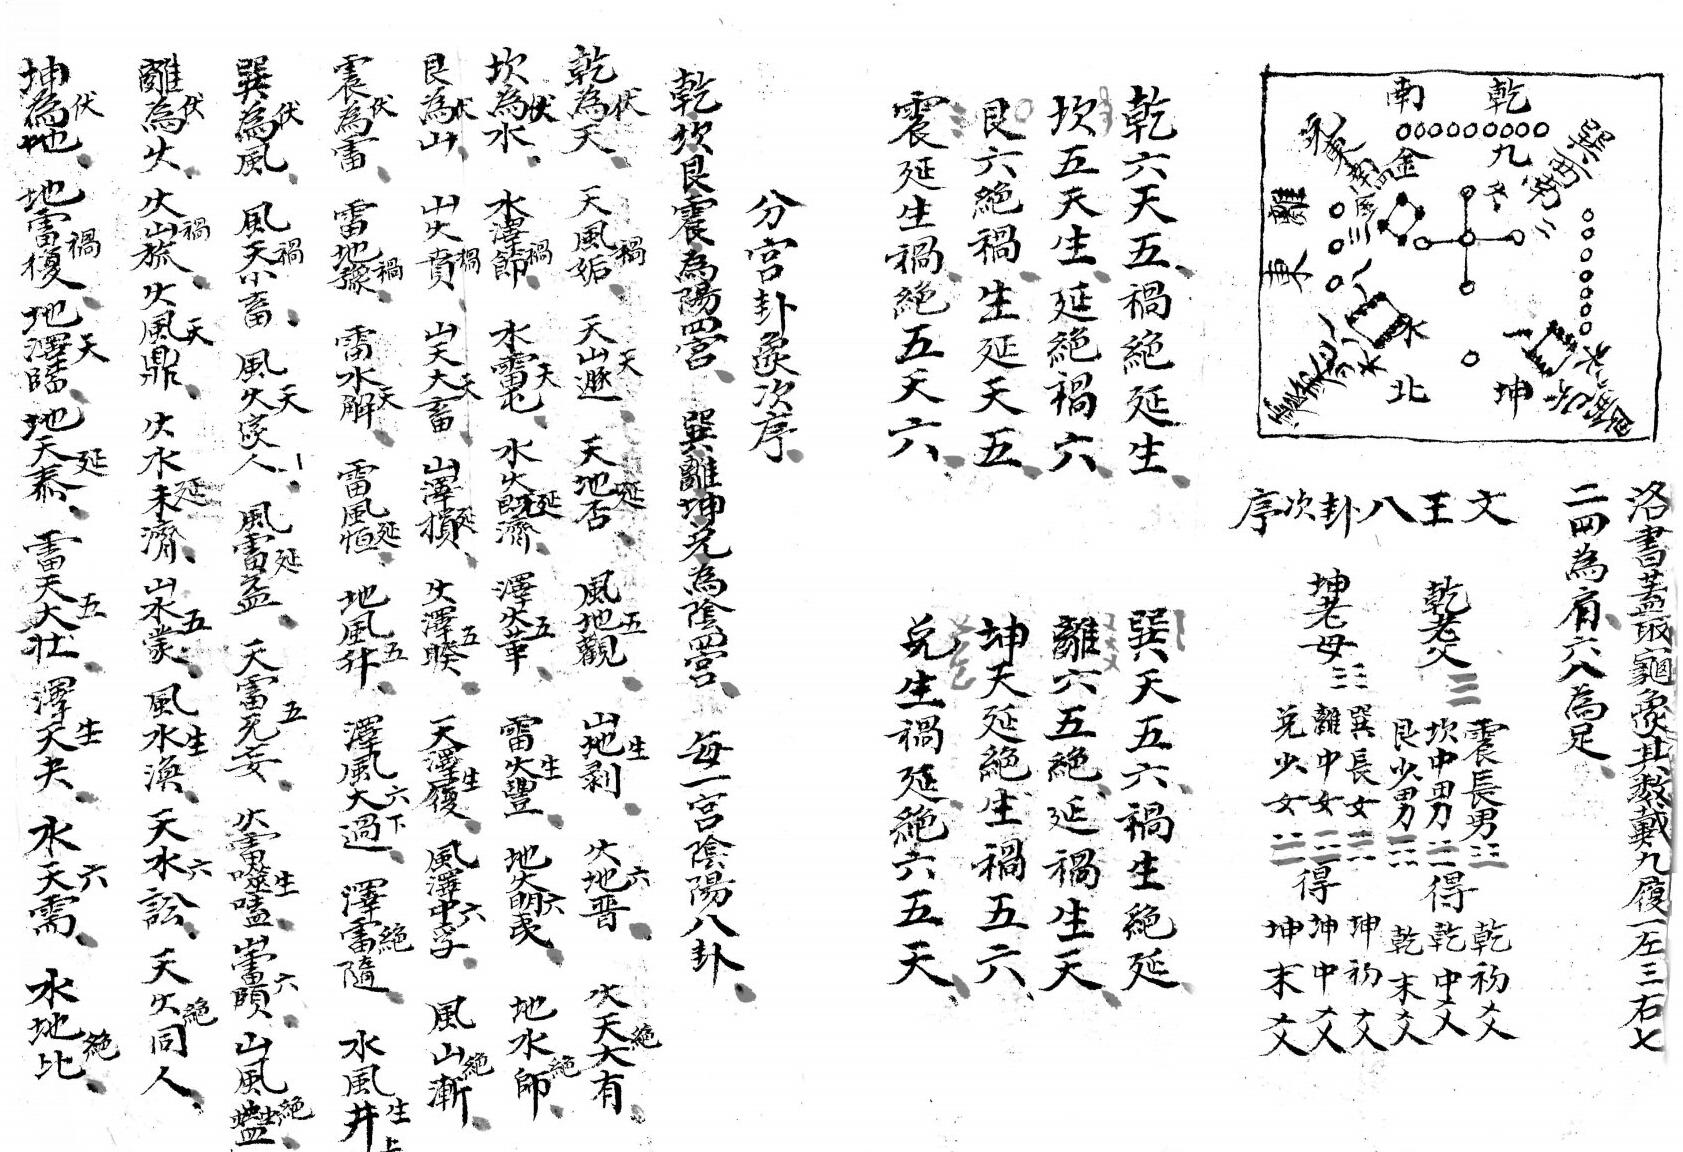 洛書蓋取龜象其數戴九履一左三右七
二四為肩六八為足
南
乾
九
金
離
東
水
北
坤
文王八卦次序
乾老父☰
震長男☳
坎中男☵
艮少男☶
得
乾初爻
乾中爻
乾末爻
坤老母☷
巽長女☴
離中女☲
兌少女☱
得
坤初爻
坤中爻
坤末爻
乾六天五禍絕延生
坎五天生延絕禍六
艮六絕禍生延天五
震延生禍絕五天六
巽天五六禍生絕延
離六五絕延禍生天
坤天延絕生禍五六
兌生禍延絕六五天
分宮卦象次序
乾坎艮震為陽四宮 巽離坤兌為陰四宮 每一宮陰陽八卦
乾為天伏 天風姤禍 天山遯天 天地否延 風地觀五 山地剥生 火地晉六 火天大有絕
坎為水伏 水澤節禍 水雷屯天 水火既濟延 澤火革五 雷火豐生 地火明夷六 地水師絕
艮為山伏 山火賁禍 山天大畜天 山澤損延 火澤睽五 天澤履生 風澤中孚六 風山漸絕
震為雷伏 雷地豫禍 雷水解天 雷風恒延 地風升五 澤風大過六下 澤雷隨絕 水風井生上
巽為風伏 風天小畜禍 風火家人天 風雷益延 天雷无妄五 火雷噬嗑生 山雷頤六 山風蠱絕
離為火伏 火山旅禍 火風鼎天 火水未濟延 山水蒙五 風水渙生 天水訟六 天火同人絕
坤為地伏 地雷復禍 地澤臨天 地天泰延 雷天大壯五 澤天夬生 水天需六 水地比絕